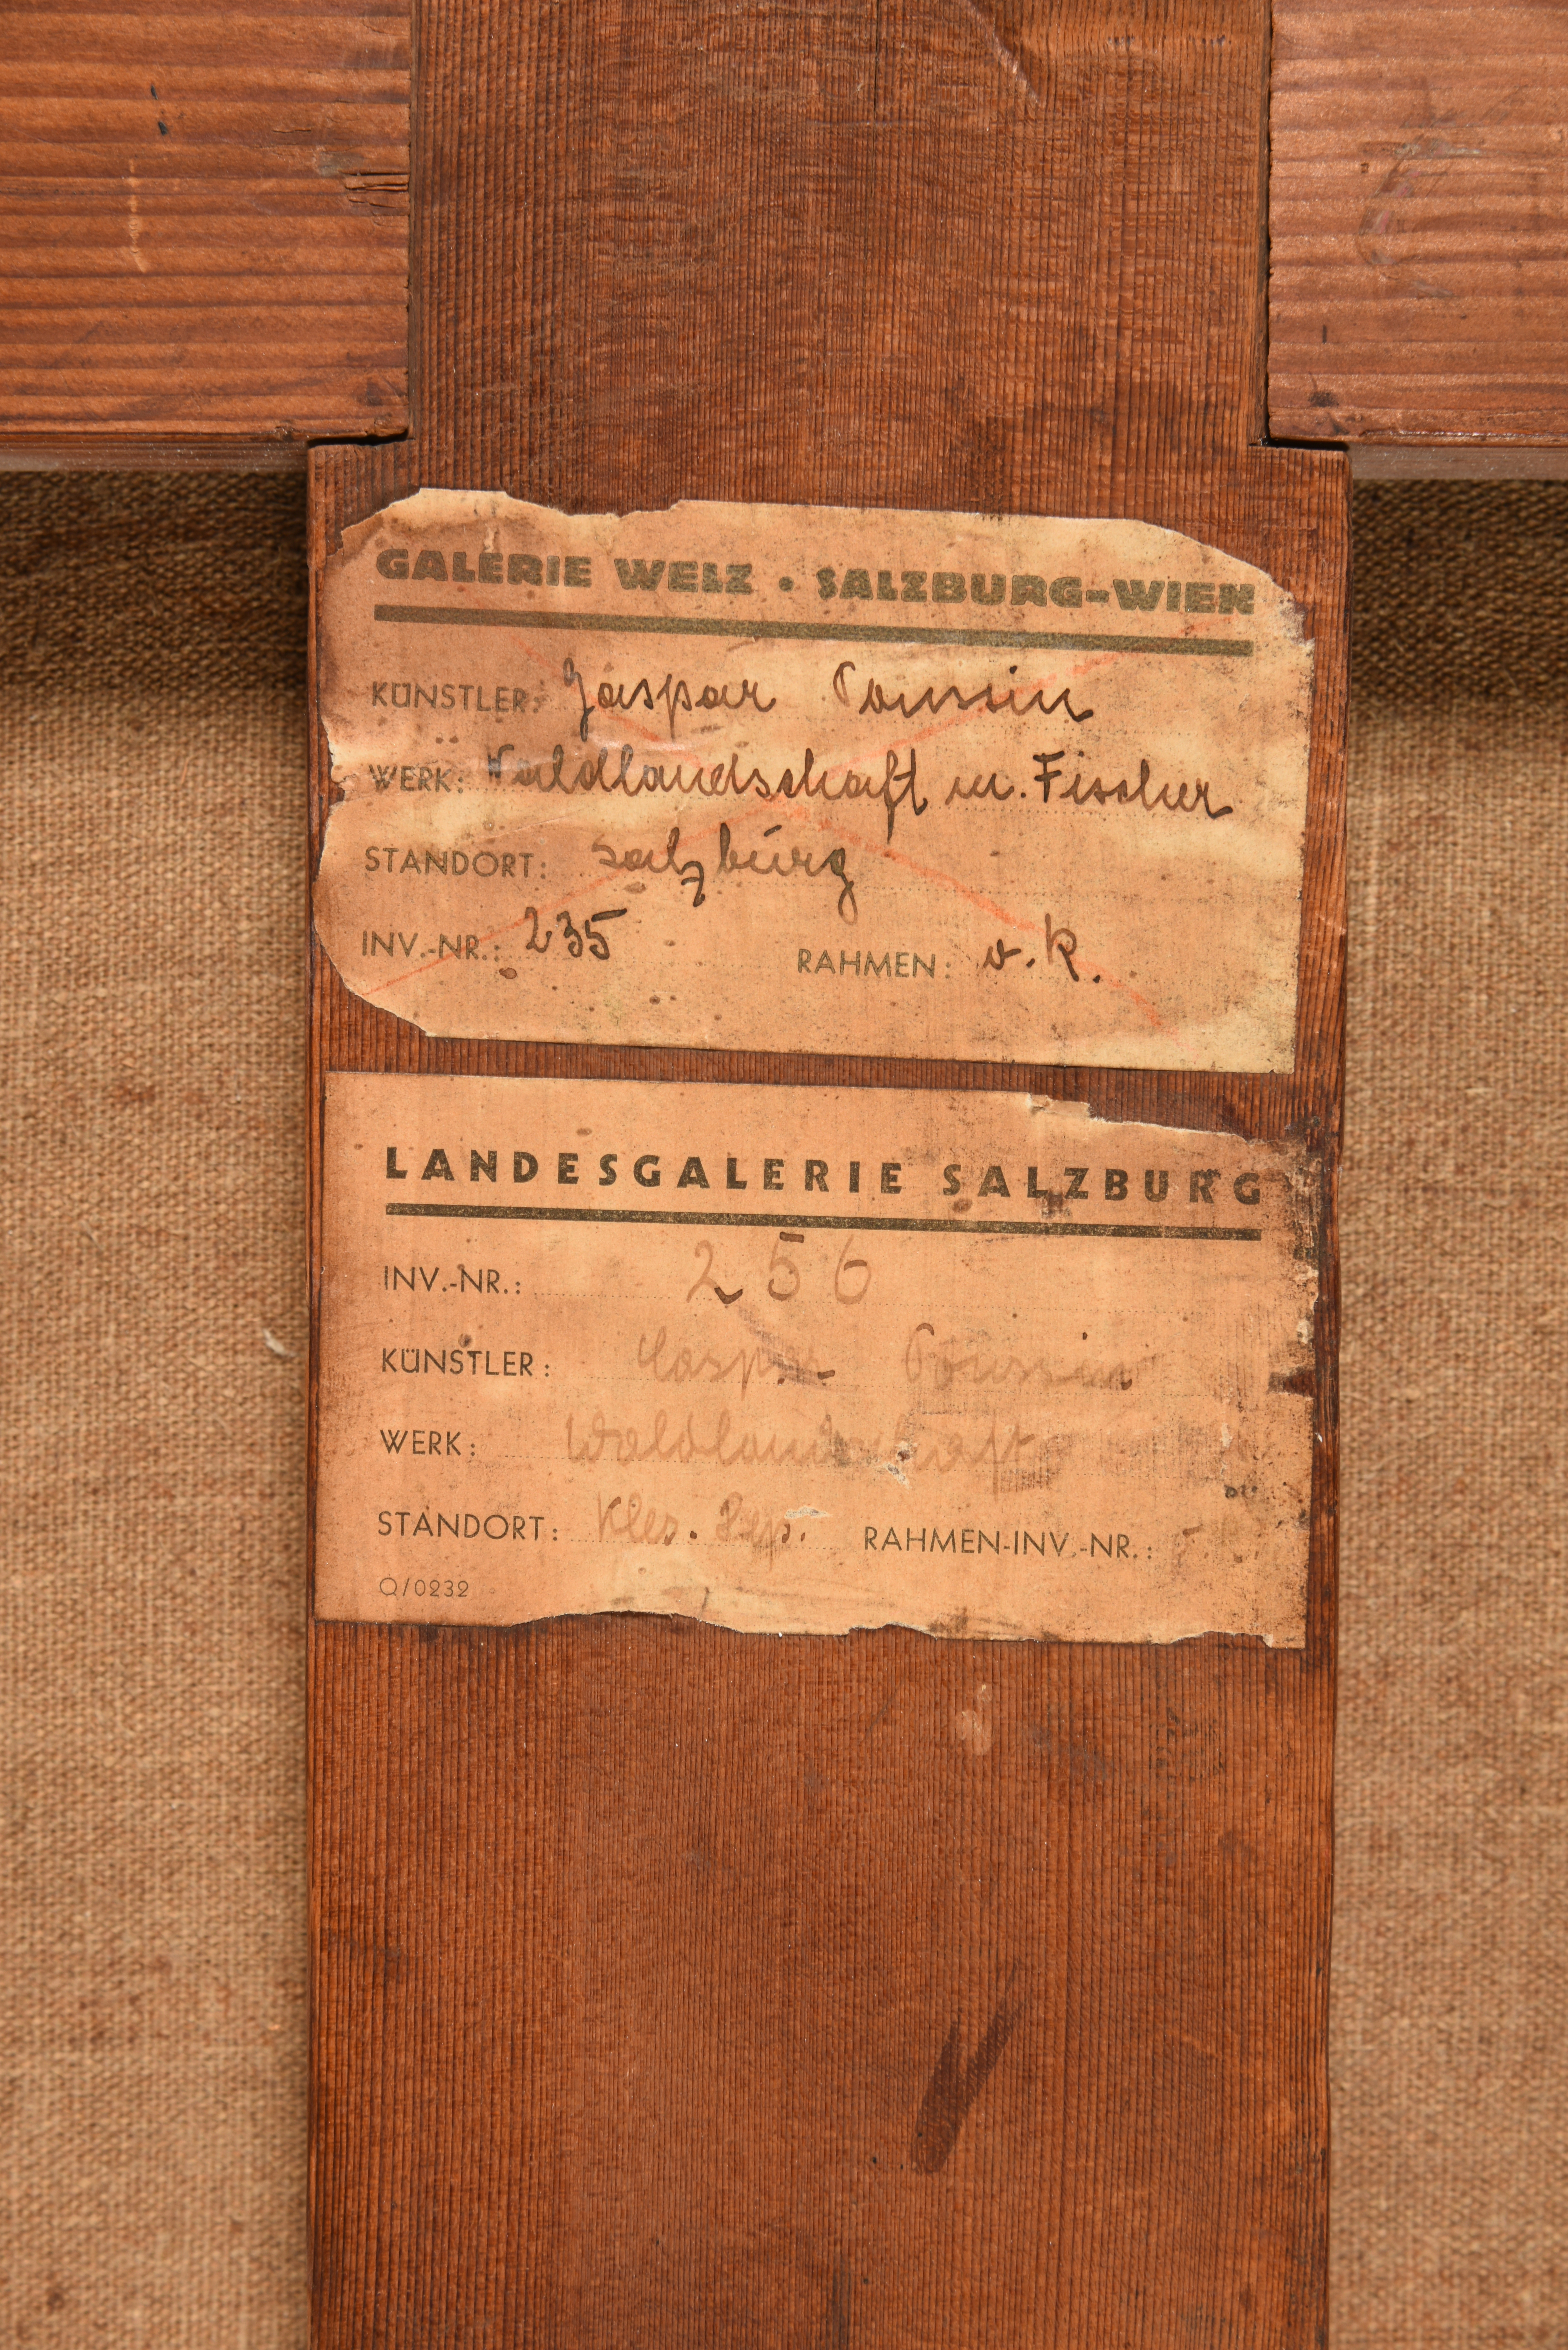 GALERIE WELZ • SALZBURG-WIEN
KÜNSTLER: Gaspar Poussin
WERK: Waldlandschaft m. Fischer
STANDORT: Salzburg
INV.-NR.: 235 RAHMEN: o. R.
LANDESGALERIE SALZBURG
INV.-NR.: 256
KÜNSTLER: Caspar Poussin
WERK: Waldlandschaft
STANDORT: Kles. Dep. RAHMEN-INV.-NR.:
Q/0232